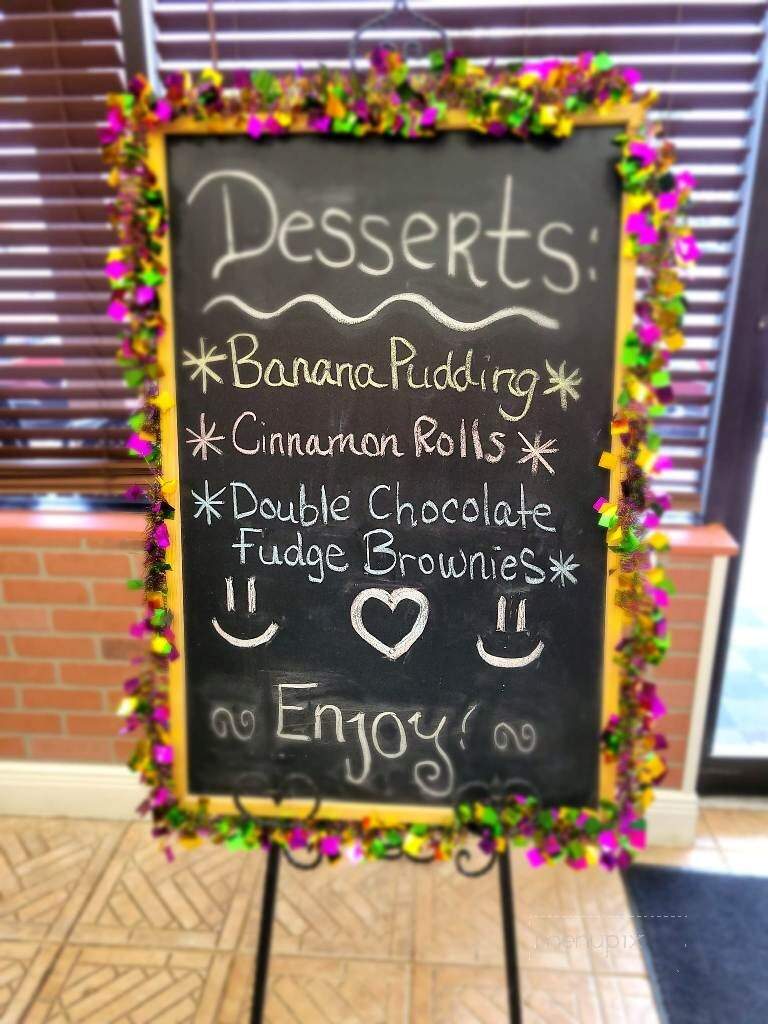 Desserts:
*Banana Pudding*
*Cinnamon Rolls*
*Double Chocolate
Fudge Brownies*
Enjoy!
menupix